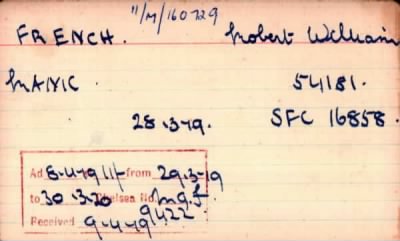 11/M/160729
FRENCH. Robert William
MANIC 54181.
28.3.19. SFC 16858.
Ad 8.4.19 11/- from 29.3.19
to 30.3.20 Chelsea Rd.
9422
Received 9.4.19